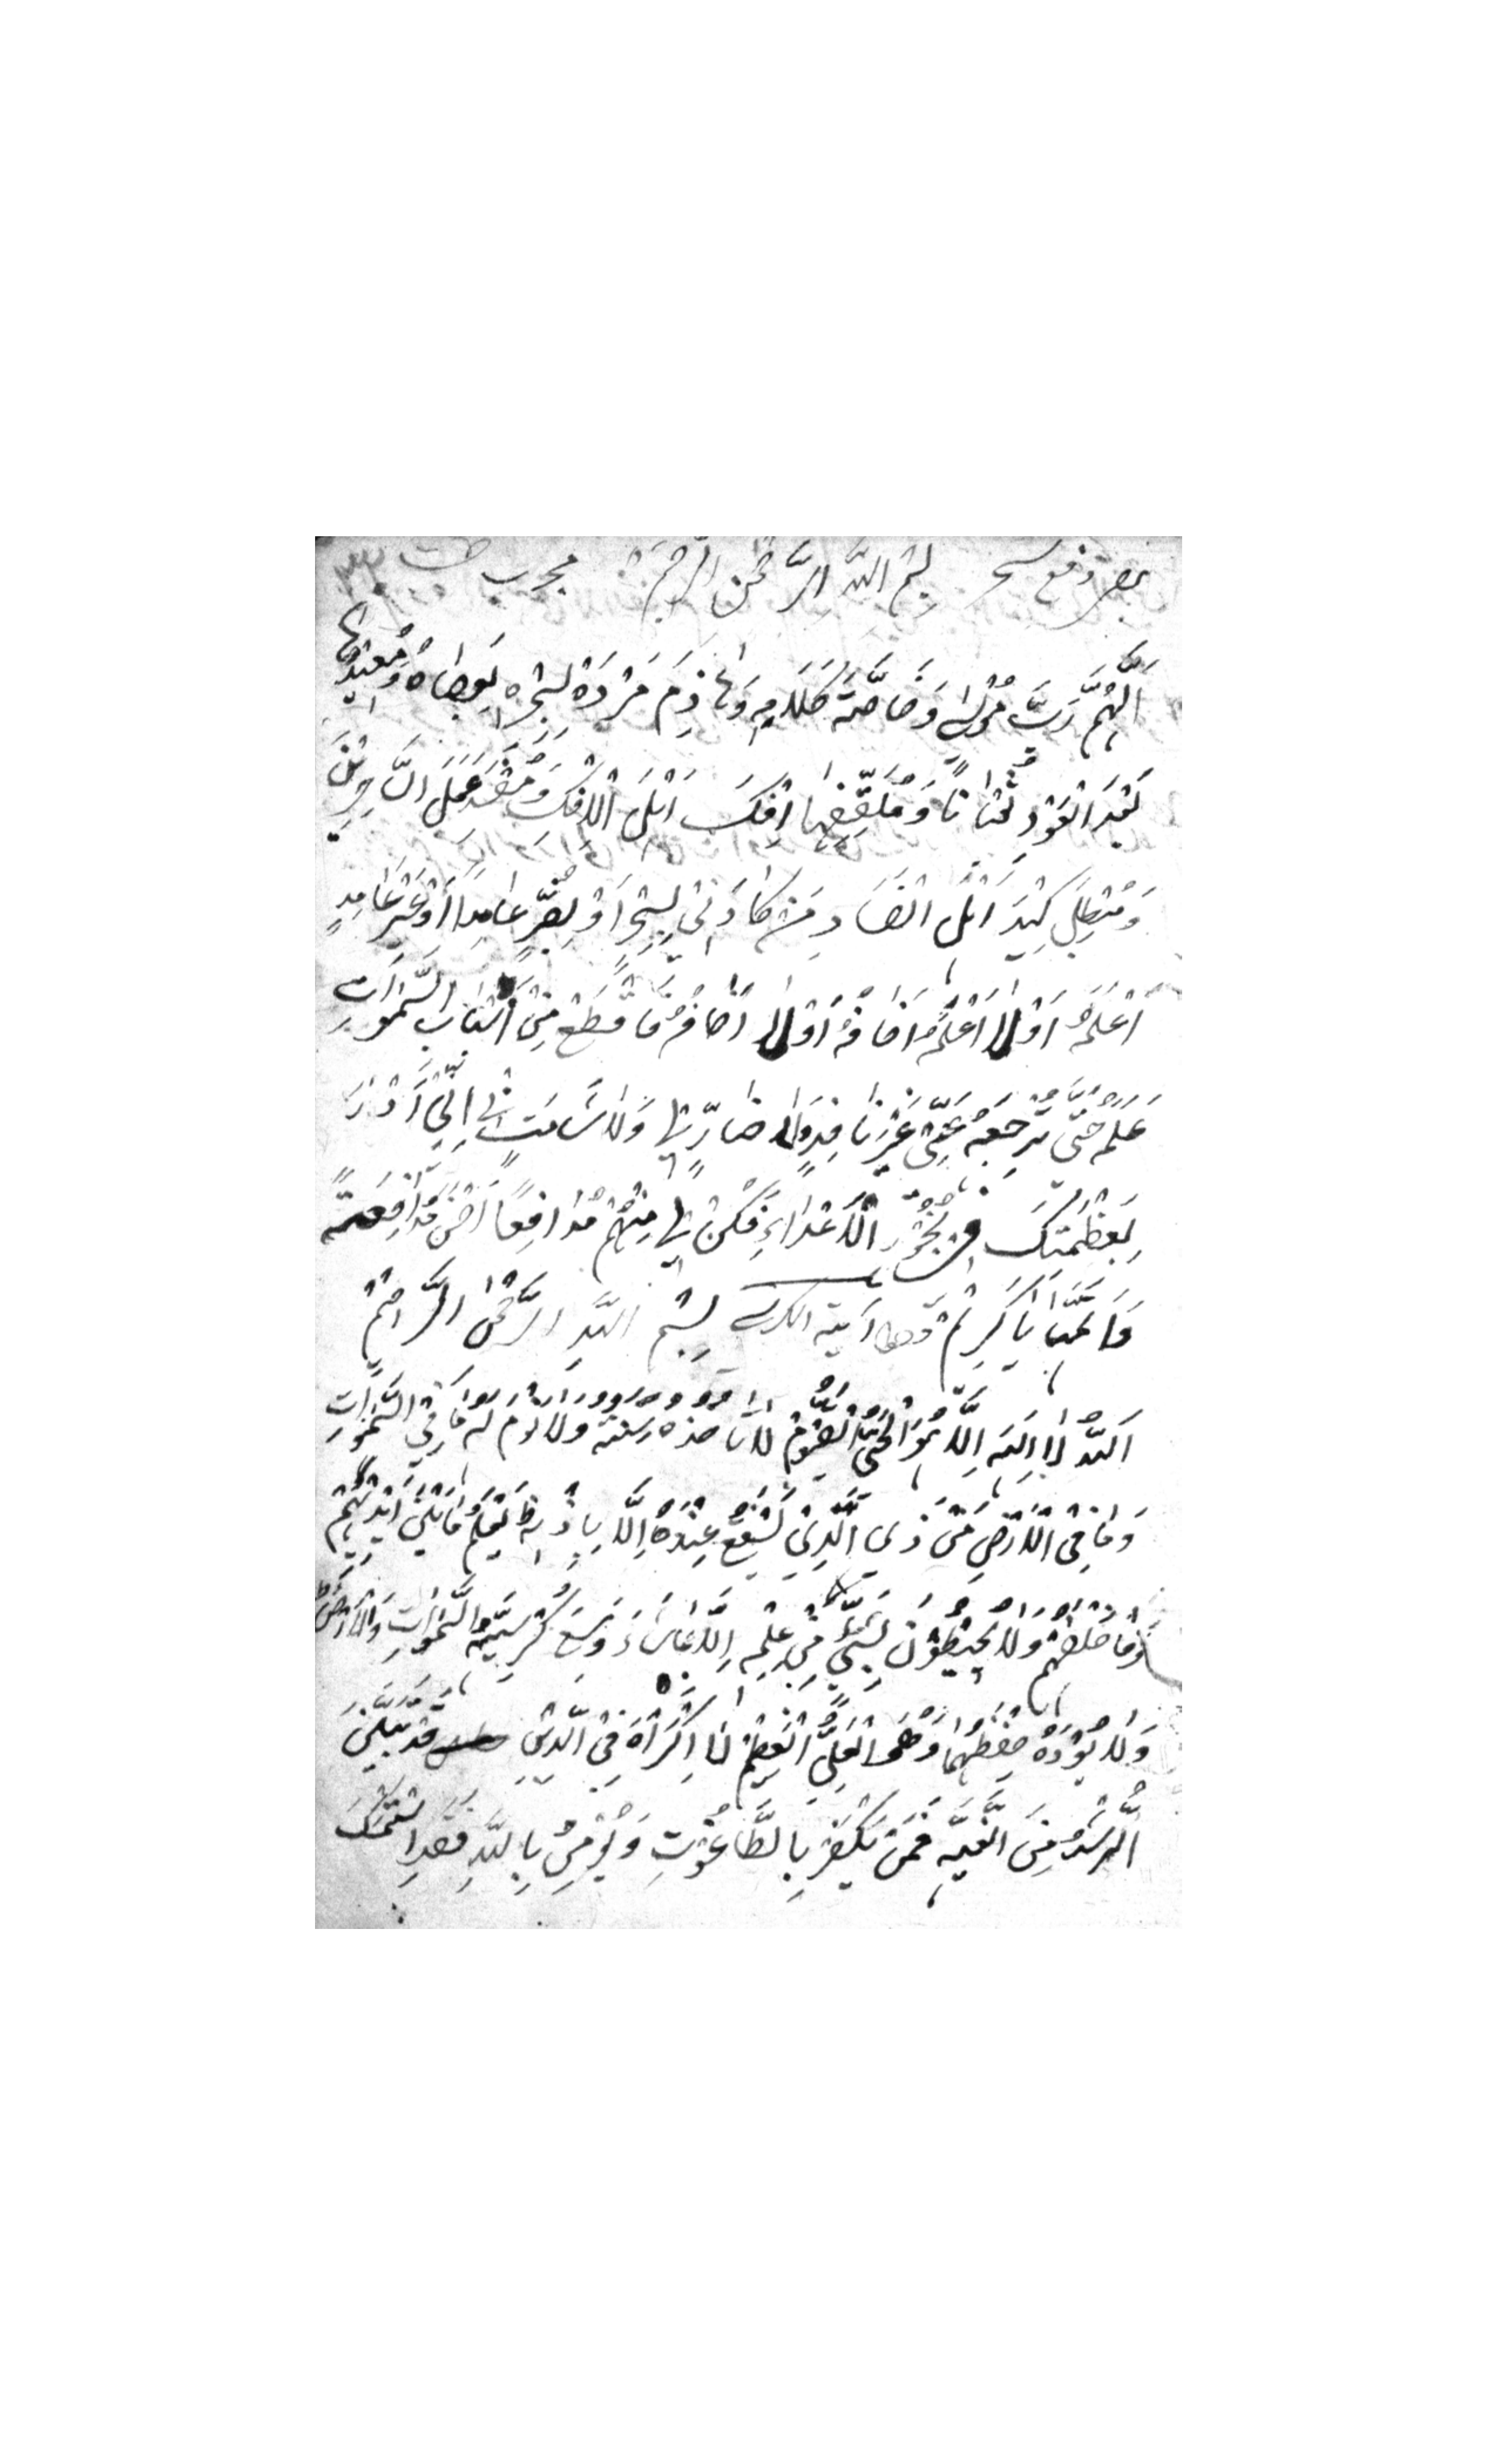 بجهة دفع سحر بسم الله الرحمن الرحيم مجرب است
اَللّٰهُمَّ رَبَّ مُوْسٰى وَخَاصَّتَهُ بِكَلَامِهٖ وَهَازِمَ مَنْ كَادَهُ بِسِحْرِهٖ بِعَصَاهُ وَمُعِيْدَهَا
بَعْدَ الْعَوْدِ ثُعْبَانًا وَمُلَقِّفَهَا اِفْكَ اَهْلِ الْاِفْكِ وَمُفْسِدَ عَمَلِ السَّاحِرِيْنَ
وَمُبْطِلَ كَيْدَ اَهْلِ الْفَسَادِ مَنْ كَادَنِيْ بِسِحْرٍ اَوْ بِضُرٍّ عَامِدًا اَوْ غَيْرَ عَامِدٍ
اَعْلَمُهُ اَوْ لَا اَعْلَمُهُ اَخَافُهُ اَوْ لَا اَخَافُهُ فَاقْطَعْ مِنْ اَسْبَابِ السَّمٰوَاتِ
عَمَلَهُ حَتّٰى تُرْجِعَهُ عَنِّيْ غَيْرَ نَافِذٍ وَلَا ضَارٍّ بِيْ وَلَا شَامِتٍ بِيْ اِنِّيْ اَدْرَءُ
بِعَظَمَتِكَ فِيْ نُحُوْرِ الْاَعْدَاءِ فَكُنْ لِيْ مِنْهُمْ مُدَافِعًا اَحْسَنَ مُدَافَعَةٍ
وَاَتَمَّهَا يَا كَرِيْمُ آية الكرسي بِسْمِ اللّٰهِ الرَّحْمٰنِ الرَّحِيْمِ
اَللّٰهُ لَا اِلٰهَ اِلَّا هُوَ الْحَيُّ الْقَيُّوْمُ لَا تَاْخُذُهُ سِنَةٌ وَلَا نَوْمٌ لَهُ مَا فِي السَّمٰوَاتِ
وَمَا فِي الْاَرْضِ مَنْ ذَي الَّذِيْ يَشْفَعُ عِنْدَهُ اِلَّا بِاِذْنِهٖ يَعْلَمُ مَا بَيْنَ اَيْدِيْهِمْ
وَمَا خَلْفَهُمْ وَلَا يُحِيْطُوْنَ بِشَيْءٍ مِنْ عِلْمِهٖ اِلَّا بِمَا شَاءَ وَسِعَ كُرْسِيُّهُ السَّمٰوَاتِ وَالْاَرْضَ
وَلَا يَؤُدُهُ حِفْظُهُمَا وَهُوَ الْعَلِيُّ الْعَظِيْمُ لَا اِكْرَاهَ فِي الدِّيْنِ قَدْ تَبَيَّنَ
الرُّشْدُ مِنَ الْغَيِّ فَمَنْ يَكْفُرْ بِالطَّاغُوْتِ وَيُؤْمِنْ بِاللّٰهِ فَقَدِ اسْتَمْسَكَ